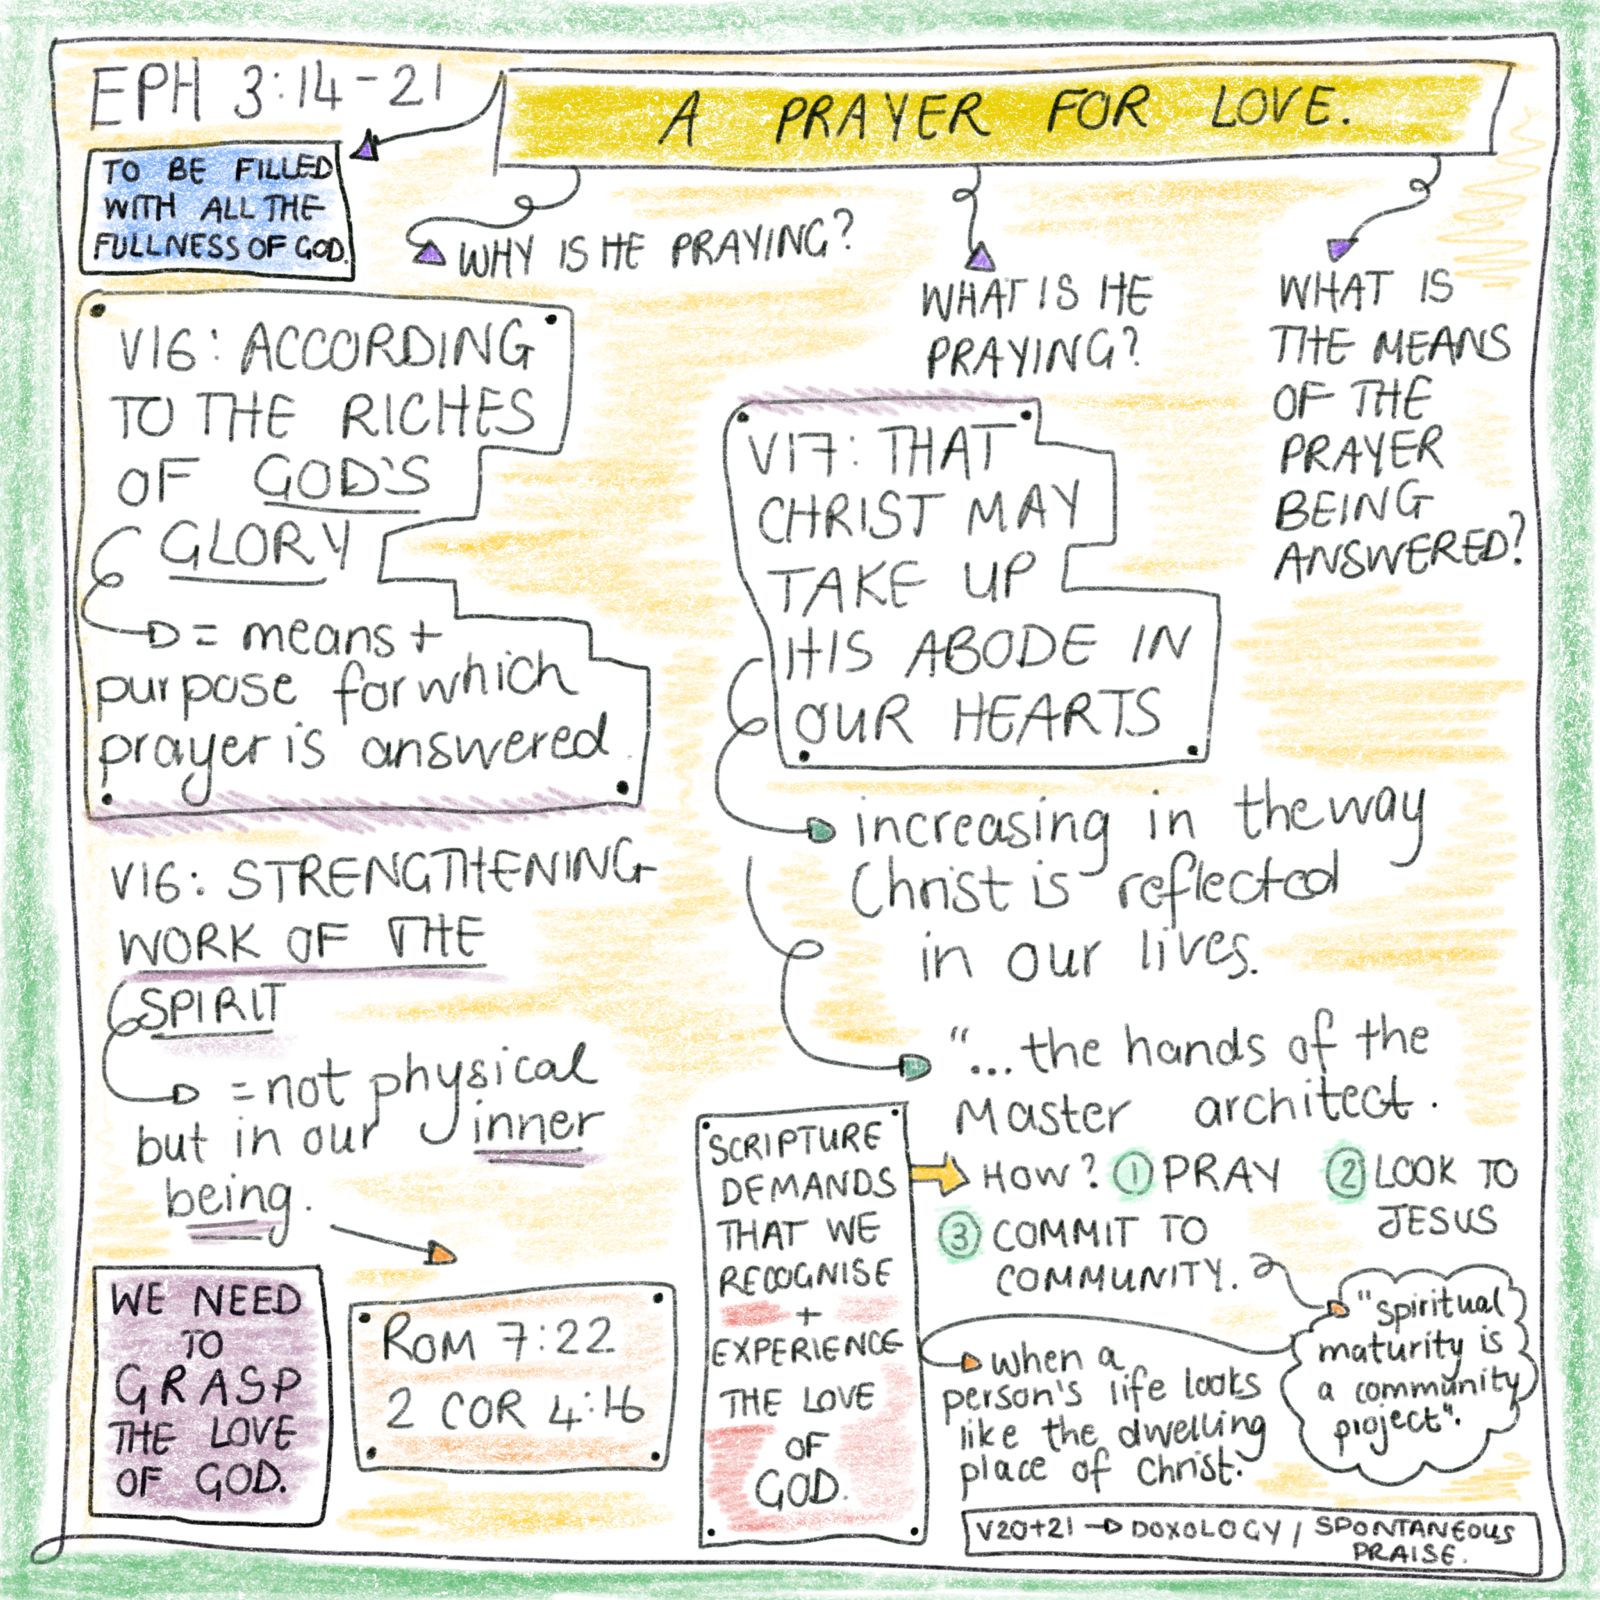 EPH 3:14-21
A PRAYER FOR LOVE.
TO BE FILLED
WITH ALL THE
FULLNESS OF GOD.
WHY IS HE PRAYING?
WHAT IS HE
PRAYING?
WHAT IS
THE MEANS
OF THE
PRAYER
BEING
ANSWERED?
V16: ACCORDING
TO THE RICHES
OF GOD'S
GLORY
= means +
purpose for which
prayer is answered.
V16: STRENGTHENING
WORK OF THE
SPIRIT
= not physical
but in our inner
being.
WE NEED
TO
GRASP
THE LOVE
OF GOD.
ROM 7:22
2 COR 4:16
V17: THAT
CHRIST MAY
TAKE UP
HIS ABODE IN
OUR HEARTS
increasing in the way
Christ is reflected
in our lives.
"...the hands of the
Master architect.
SCRIPTURE
DEMANDS
THAT WE
RECOGNISE
+
EXPERIENCE
THE LOVE
OF
GOD.
HOW? 1 PRAY 2 LOOK TO
JESUS
3 COMMIT TO
COMMUNITY.
"spiritual
maturity is
a community
project".
when a
person's life looks
like the dwelling
place of Christ.
V20+21 → DOXOLOGY / SPONTANEOUS
PRAISE.